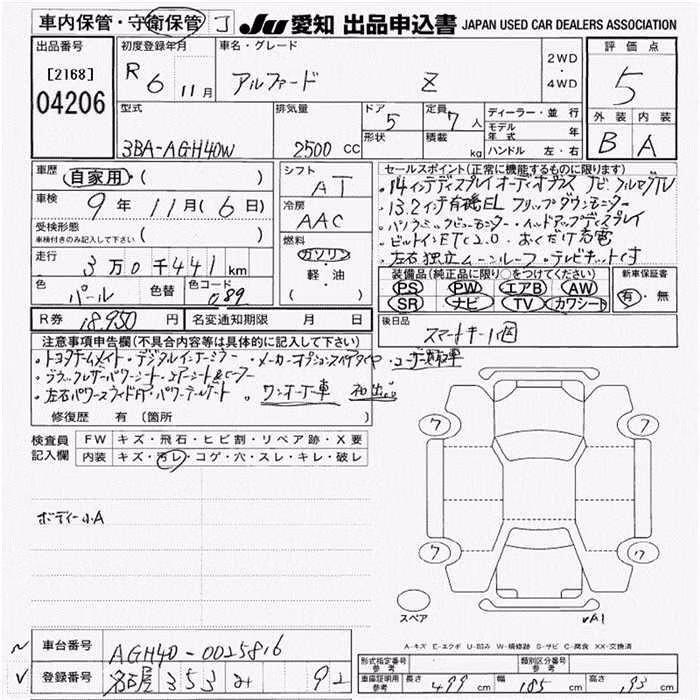 車内保管・守衛保管 J JU 愛知 出品申込書 JAPAN USED CAR DEALERS ASSOCIATION
出品番号 初度登録年月 車名・グレード 2WD・4WD 評価点
[2168] R 6 11月 アルファード Z 5
04206
型式 排気量 ドア 5 定員 7人 ディーラー・並行 外装 内装
3BA-AGH40W 2500 cc 形状 積載 kg モデル年式 年 B A
ハンドル 左・右
車歴 自家用・( ) シフト AT セールスポイント(正常に機能するものに限ります)
車検 9年 11月(6日) 冷房 AAC ・14インチディスプレイオーディオプラス ナビ フルセグTV
・13.2イチ有機EL フリップダウンモニター
受検形態 車検付きのみ記入して下さい ( ) ・パノラミックビューモニター・ヘッドアップディスプレイ
・ビルトインETC2.0・おくだけ充電
走行 3万0千441km 燃料 ガソリン・軽・油 ( ) ・左右独立ムーンルーフ・
色 パール 色替 色コード 089 装備品(純正品に限り○をつけてください) 新車保証書
PS PW エアB AW 有・無
SR ナビ TV カワシート
R券 18,950円 名変通知期限 月 日 後日品 スマートキー1個
注意事項申告欄(不具合内容等は具体的に記入して下さい)
・トヨタチームメイト・デジタルインナーミラー・メーカーオプションスペアタイヤ・ユーザー買取車
・ブラックレザーパワーシート・エアーシート&ヒーター
・左右パワースライドドア・パワーテールゲート・ワンオーナー車
修復歴 有 (箇所 )
検査員記入欄 FW キズ・飛石・ヒビ割・リペア跡・X要
内装 キズ・汚レ・コゲ・穴・スレ・キレ・破レ
ボディー小A
7 7
7 7
スペア A1
A-キズ E-エクボ U-凹み W-補修跡 S-サビ C-腐食 XX-交換済
車台番号 AGH40-0025816
登録番号 名古屋 353 92
形式指定番号 参考 類別区分番号 参考
車庫証明用 参考 長さ 499 cm 幅 185 cm 高さ 193 cm